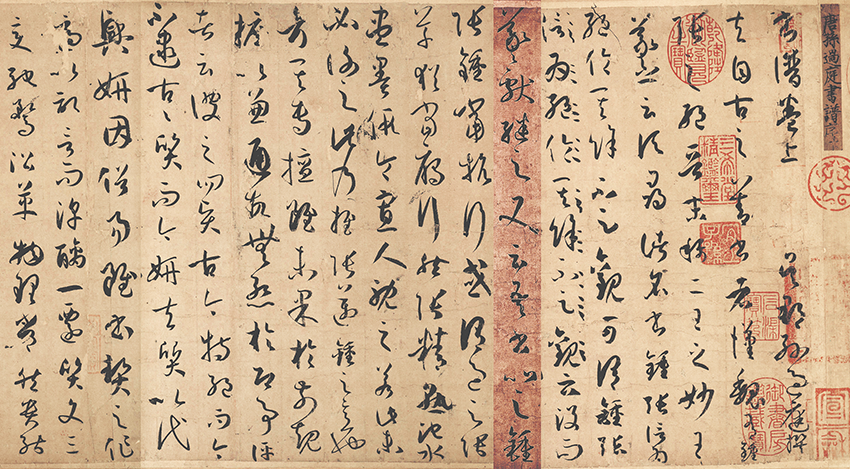 唐孫過庭書譜序上
書譜卷上 吳郡孫過庭撰
夫自古之善書者漢魏有鍾
張之絕晉末稱二王之妙王
羲之云頃尋諸名書鍾張信為
絕倫其餘不足觀可謂鍾張
為絕倫其餘不足觀云沒而
羲獻繼之又云吾書比之鍾
張鍾當抗行或謂過之張
草猶當雁行然張精熟池水
盡墨假令寡人耽之若此未
必謝之此乃推張邁鍾之意也
考其專擅雖未果於前規
摭以兼通故無慚於即事評
者云彼之四賢古今特絕而今
不逮古古質而今妍夫質以代
興妍因俗易雖書契之作
適以記言而淳醨一遷質文三
變馳騖沿革物理常然貴能
乾隆鑑賞
三希堂精鑑璽
宜子孫
御書房鑑藏寶